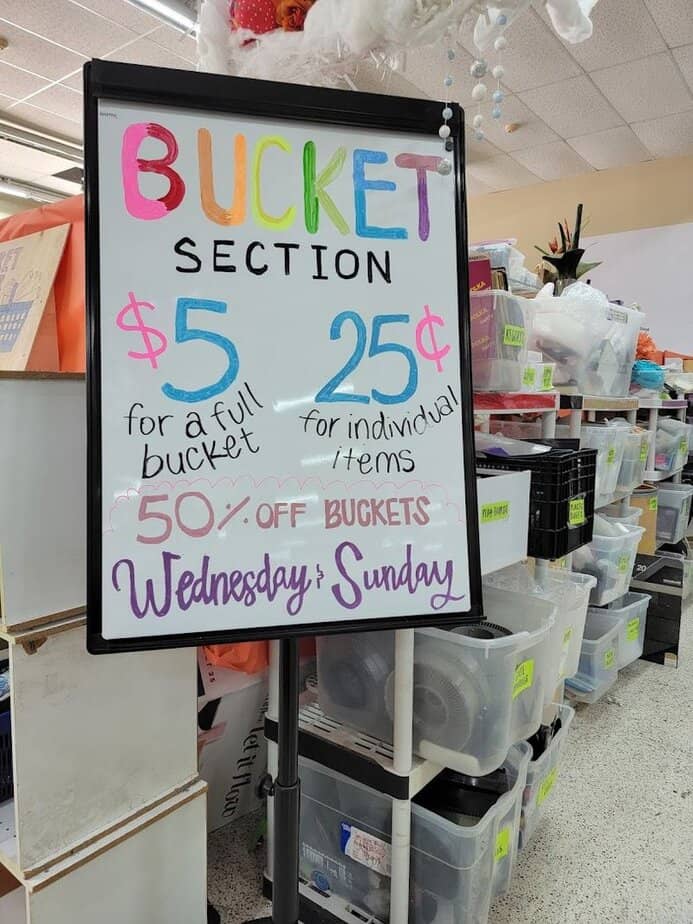 BUCKET
SECTION
$5
for a full
bucket
25¢
for individual
items
50% OFF BUCKETS
Wednesday & Sunday
Let it Snow